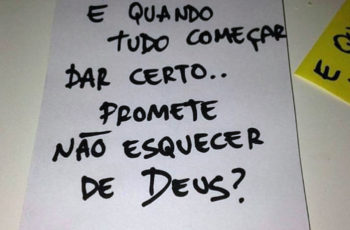 E QUANDO
TUDO COMEÇAR
DAR CERTO..
PROMETE
NÃO ESQUECER
DE DEUS?